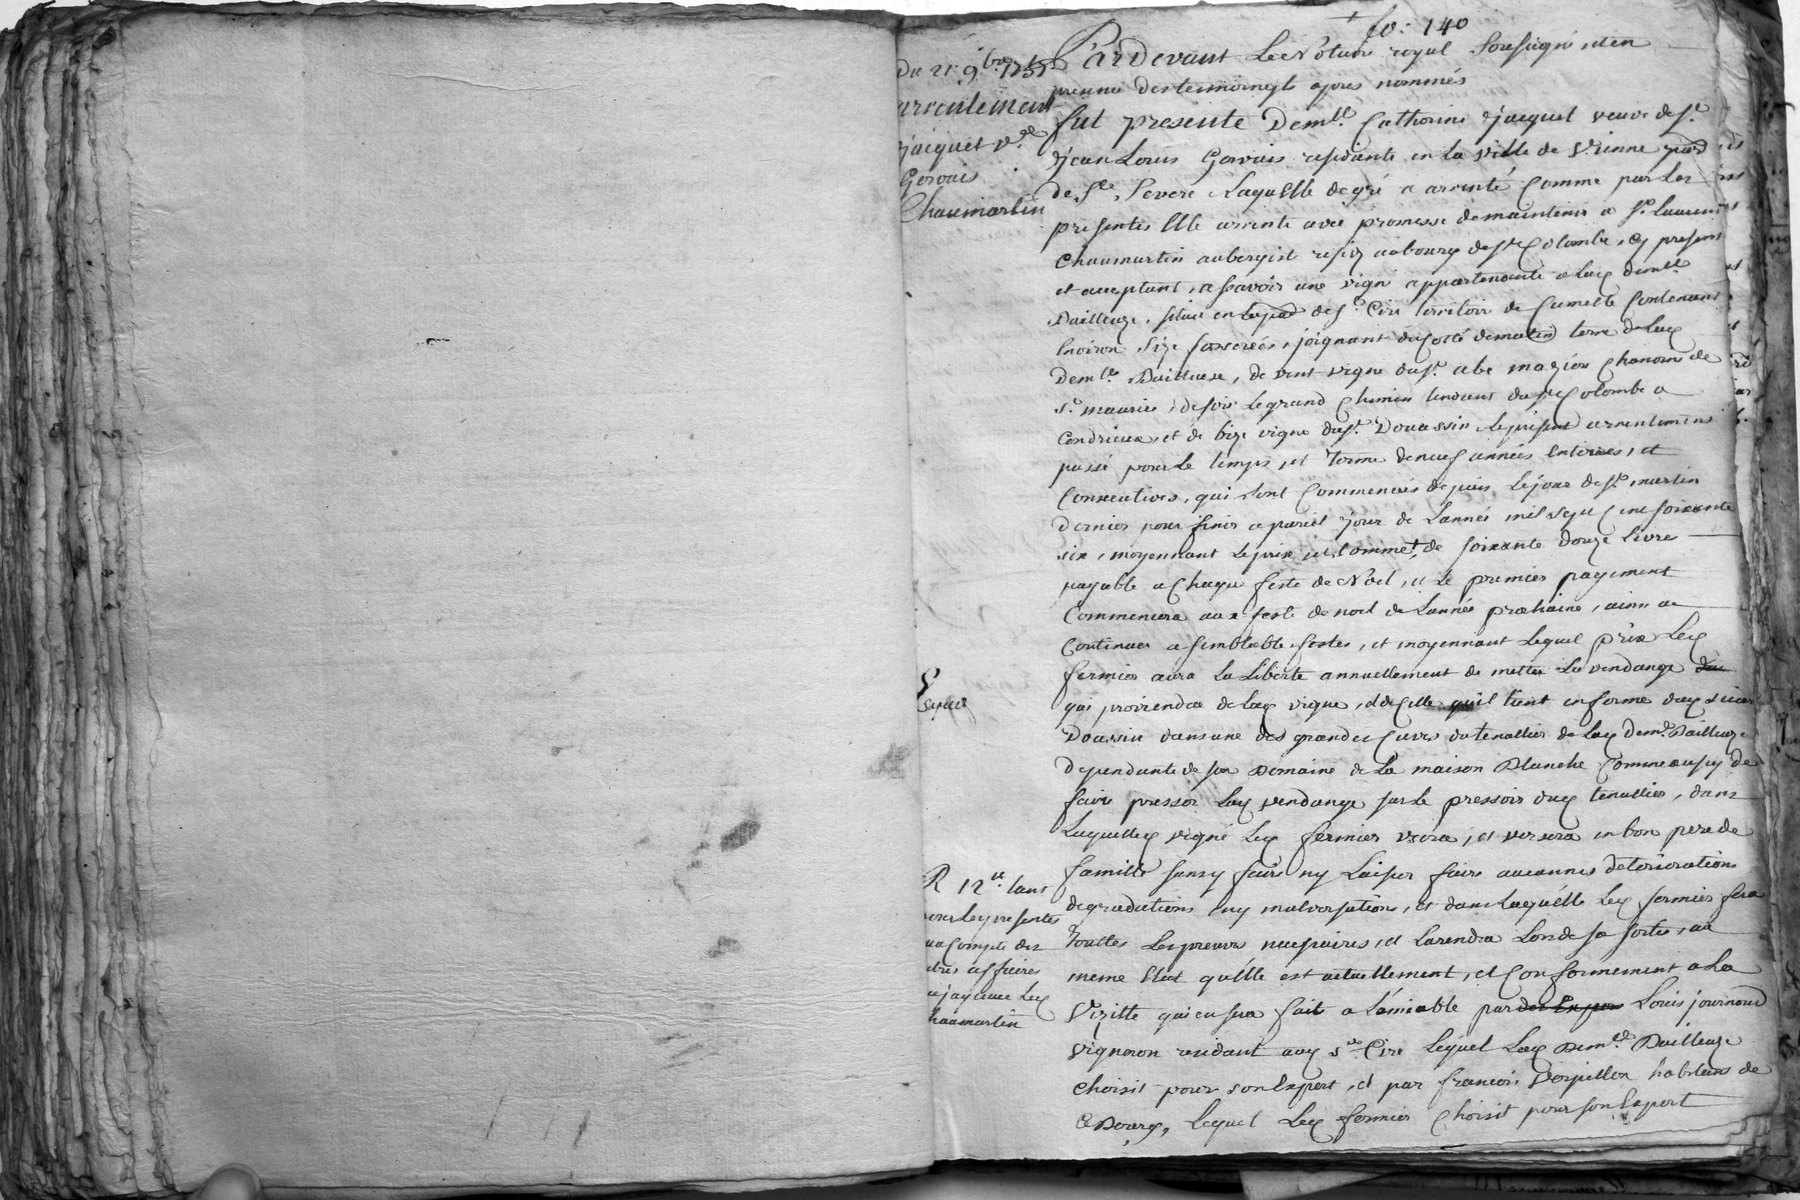 fo: 140
Du 21 9bre 1757
arrentement
jacquet ve
Gervais
Chaumartin
Pardevant Le Notaire royal Soussigné et en
presence des temoingt apres nommés
fut presente Demlle Catherine jacquet veuve de Sr
jean Louis Gervais residante en la ville de Vienne
de Ste Severe Laquelle de gré a arrenté Comme par Les
presentes Elle arrente avec promesse de maintenir a Sr
Chaumartin aubergist resid au bourg de Ste Colombe, Cy present
et acceptant, a sçavoir une vigne appartenante a Lad demlle
Bailleuze, située en La de St Cire territoire de Cumelle Contenant
Environ Size fosserées, joignant du Costé de matin terre de Lad
demlle Bailleuze, de vent vigne du Sr abé mazier Chanoine de
St maurice, de soir Le grand Chemin tendant de Ste Colombe a
Condrieux, et de bize vigne du Sr Doüassin Le present arrentement
passé pour Le temps, et terme de neuf années Entieres, et
Consecutives, qui sont Commencées depuis Le jour de St martin
dernier pour finir a pareil jour de L'année mil sept Cent soixante
six, moyennant Le prix et somme de soixante douze Livre
payable a Chaque feste de Noël, et Le premier payement
Commencera aux feste de noel de L'année prochaine, ainsi a
Continuer a semblable festes, et moyennant Lequel prix Led
fermier aura La Liberté annuellement de mettre La vendange
qui proviendra de Lad vigne, et de Celle qu'il tient en ferme dud sieur
Doassin dans une des grandes Cuves du tenallier de Lad Demlle Bailleuze
dependante de son Domaine de La maison Blanche Comme aussy de
faire presser Lad vendange sur Le pressoir dud tenallier, dans
Laquelle vigne Led fermier usera, et versera en bon pere de
famille sans y faire ny Laisser faire aucunnes deteriorations
degradations ny malversations, et dans Laquelle Led fermier fera
Touttes Les preuves necessaires, et La rendra Lors de sa sortie, au
meme Etat qu'elle est actuellement, et Conformement a La
Vizitte qui en sera fait a L'amiable par Louis journoud
vigneron residant aud St Cire Lequel Lad Demlle Bailleuze
Choisit pour son Expert, et par francois Verpillon habitant de
Ce Bourg, Lequel Led fermier Choisit pour son Expert
R 12 st tant
pour Les presentes
au Compte des
autres affaires
que j'ay avec Led
Chaumartin